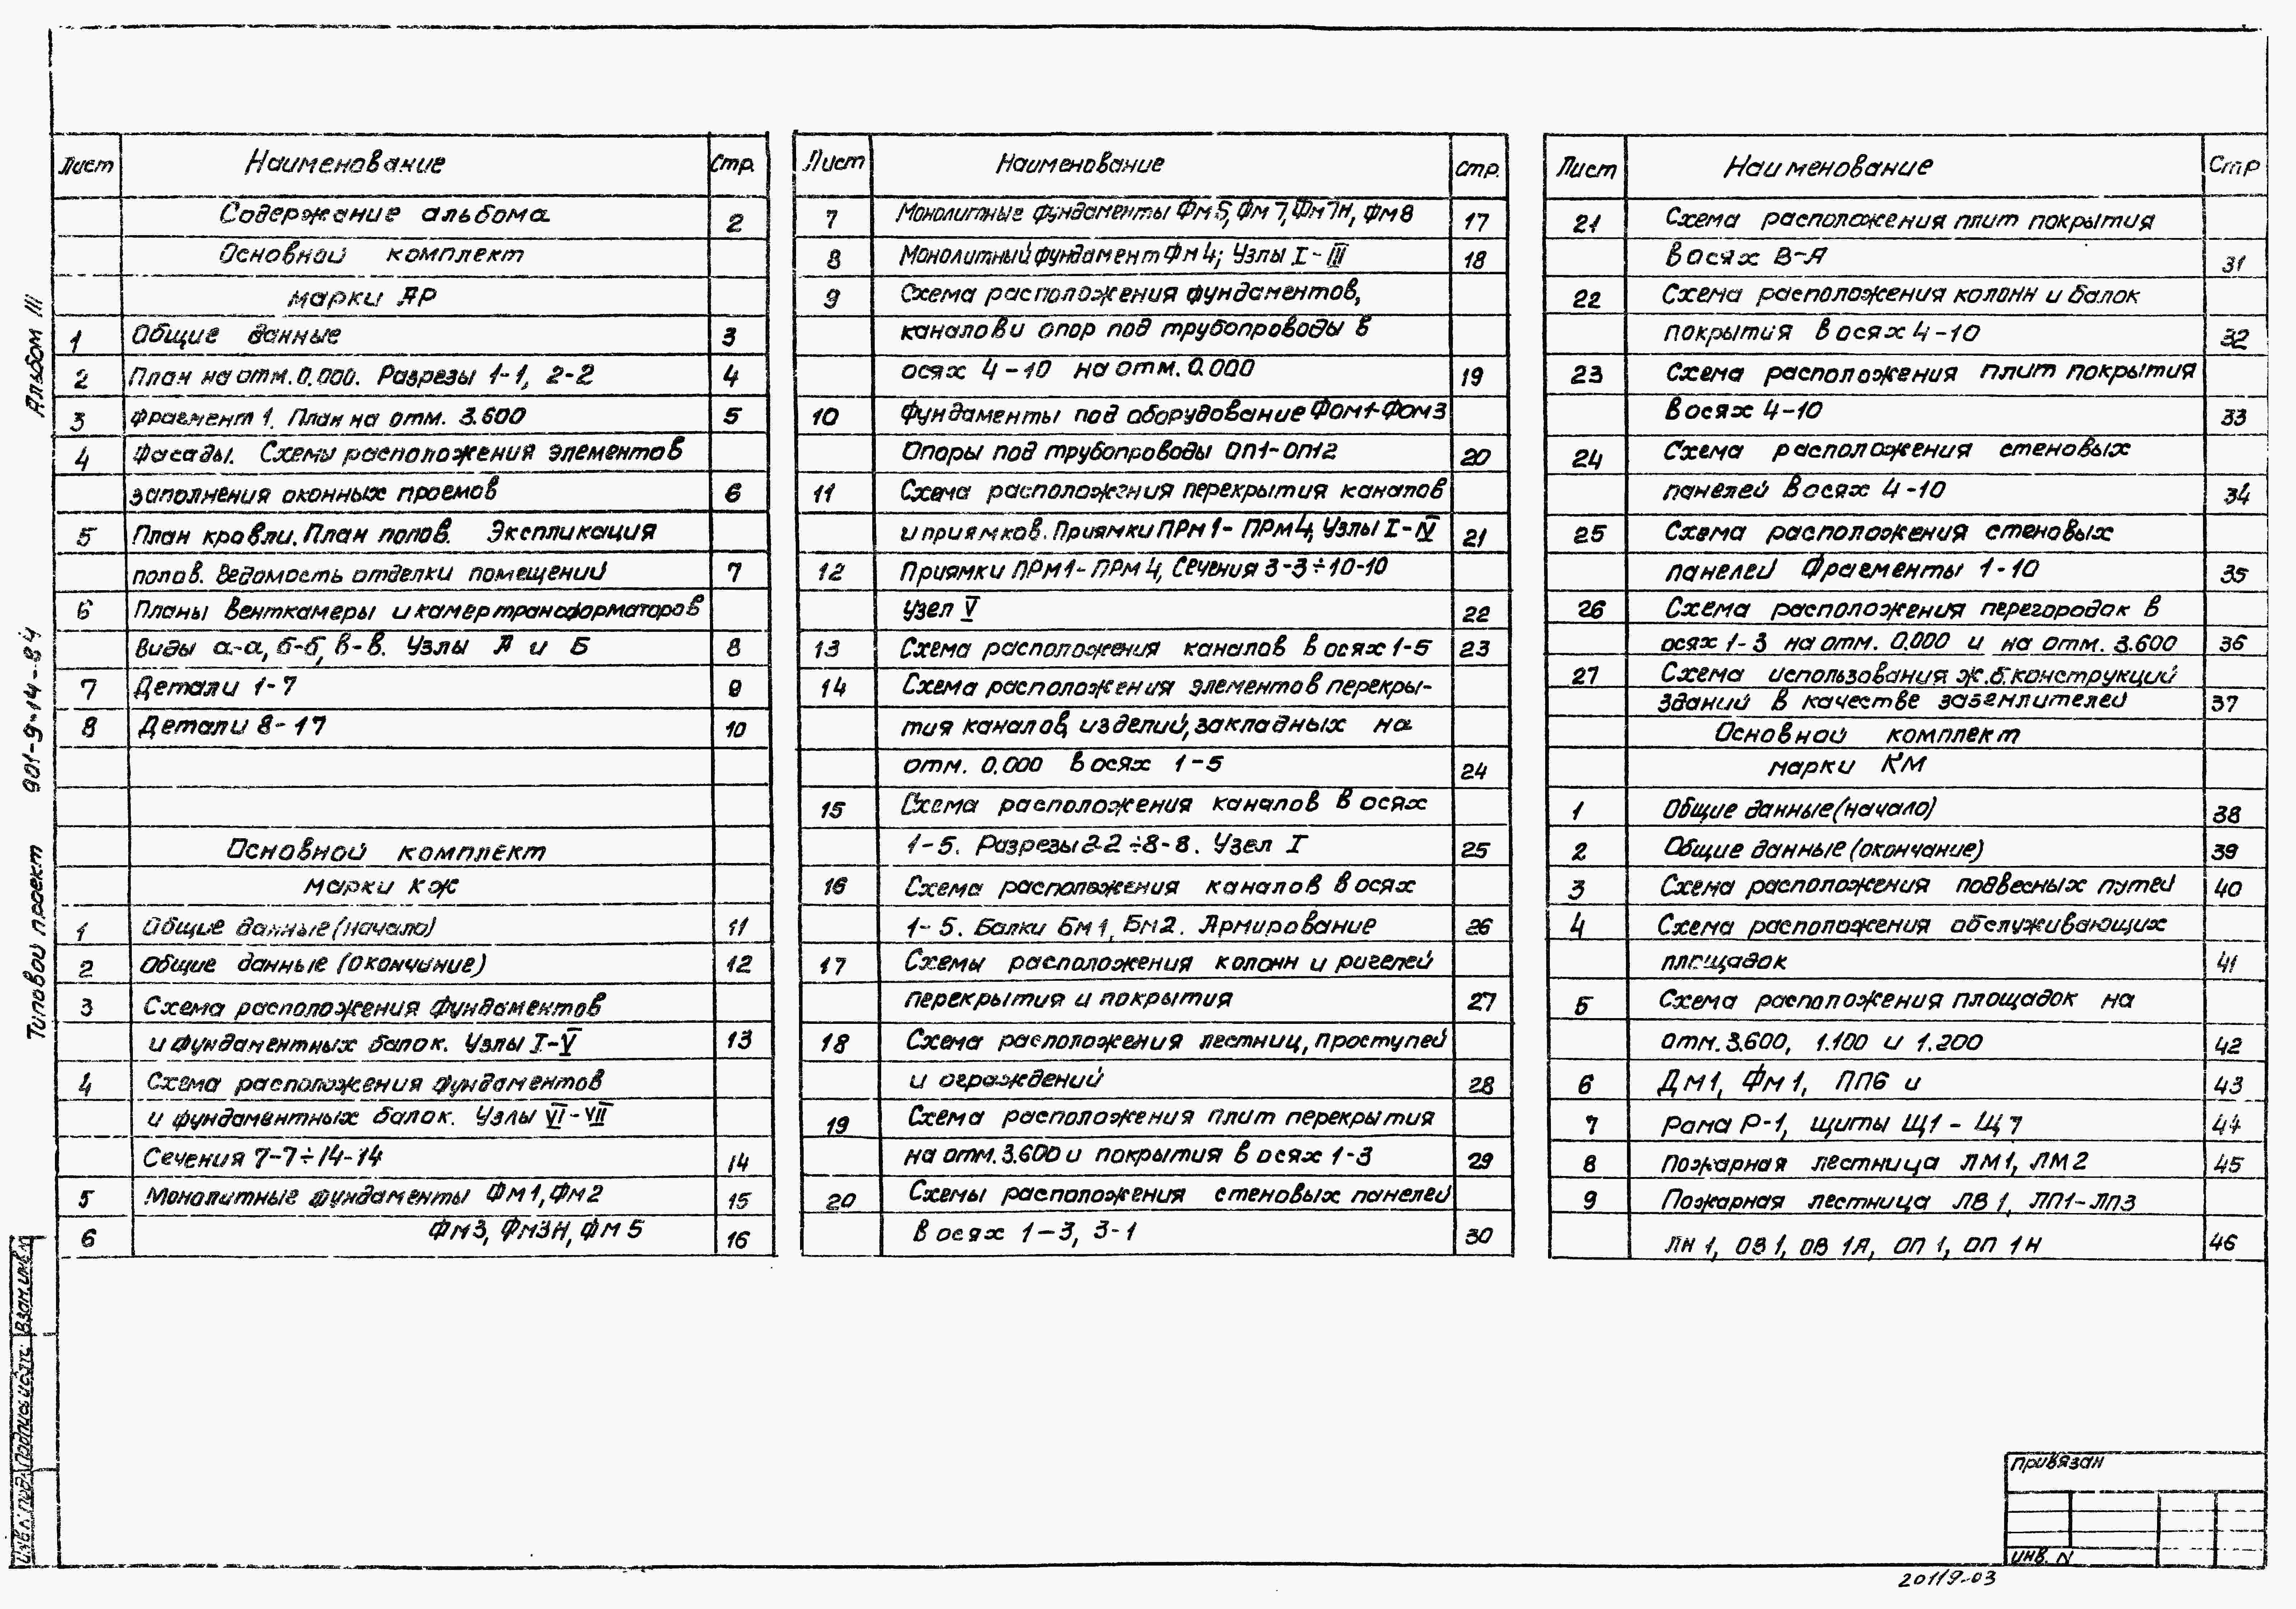 Альбом III
Типовой проект 901-9-14-84
Лист Наименование Стр.
Содержание альбома 2
Основной комплект
марки АР
1 Общие данные 3
2 План на отм. 0.000. Разрезы 1-1, 2-2 4
3 Фрагмент 1. План на отм. 3.600 5
4 Фасады. Схемы расположения элементов
заполнения оконных проемов 6
5 План кровли. План полов. Экспликация
полов. Ведомость отделки помещений 7
6 Планы венткамеры и камер трансформаторов
Виды а-а, б-б, в-в. Узлы А и Б 8
7 Детали 1-7 9
8 Детали 8-17 10
Основной комплект
марки КЖ
1 Общие данные (начало) 11
2 Общие данные (окончание) 12
3 Схема расположения фундаментов
и фундаментных балок. Узлы I-V 13
4 Схема расположения фундаментов
и фундаментных балок. Узлы VI-VII
Сечения 7-7÷14-14 14
5 Монолитные фундаменты Фм1, Фм2 15
6 Фм3, Фм3Н, Фм5 16
Лист Наименование Стр.
7 Монолитные фундаменты Фм5, Фм7, Фм7н, Фм8 17
8 Монолитный фундамент Фм4; Узлы I-III 18
9 Схема расположения фундаментов,
каналов и опор под трубопроводы в
осях 4-10 на отм. 0.000 19
10 Фундаменты под оборудование Фом1-Фом3
Опоры под трубопроводы ОП1-ОП12 20
11 Схема расположения перекрытия каналов
и приямков. Приямки ПРм1-ПРм4, Узлы I-IV 21
12 Приямки ПРм1-ПРм4, Сечения 3-3÷10-10
Узел V 22
13 Схема расположения каналов в осях 1-5 23
14 Схема расположения элементов перекры-
тия каналов, изделий, закладных на
отм. 0.000 в осях 1-5 24
15 Схема расположения каналов в осях
1-5. Разрезы 2-2÷8-8. Узел I 25
16 Схема расположения каналов в осях
1-5. Балки Бм1, Бм2. Армирование 26
17 Схемы расположения колонн и ригелей
перекрытия и покрытия 27
18 Схема расположения лестниц, проступей
и ограждений 28
19 Схема расположения плит перекрытия
на отм. 3.600 и покрытия в осях 1-3 29
20 Схемы расположения стеновых панелей
в осях 1-3, 3-1 30
Лист Наименование Стр
21 Схема расположения плит покрытия
в осях В-А 31
22 Схема расположения колонн и балок
покрытия в осях 4-10 32
23 Схема расположения плит покрытия
в осях 4-10 33
24 Схема расположения стеновых
панелей в осях 4-10 34
25 Схема расположения стеновых
панелей Фрагменты 1-10 35
26 Схема расположения перегородок в
осях 1-3 на отм. 0.000 и на отм. 3.600 36
27 Схема использования ж.б. конструкций
зданий в качестве заземлителей 37
Основной комплект
марки КМ
1 Общие данные (начало) 38
2 Общие данные (окончание) 39
3 Схема расположения подвесных путей 40
4 Схема расположения обслуживающих
площадок 41
5 Схема расположения площадок на
отм. 3.600, 1.100 и 1.200 42
6 ДМ1, ФМ1, ПП6 и 43
7 Рама Р-1, щиты Щ1-Щ7 44
8 Пожарная лестница ЛМ1, ЛМ2 45
9 Пожарная лестница ЛВ1, ЛП1-ЛП3
ЛН1, ОВ1, ОВ1А, ОП1, ОП1Н 46
Инв. № подл. Подпись и дата Взам. инв. №
привязан
инв. N
20119-03